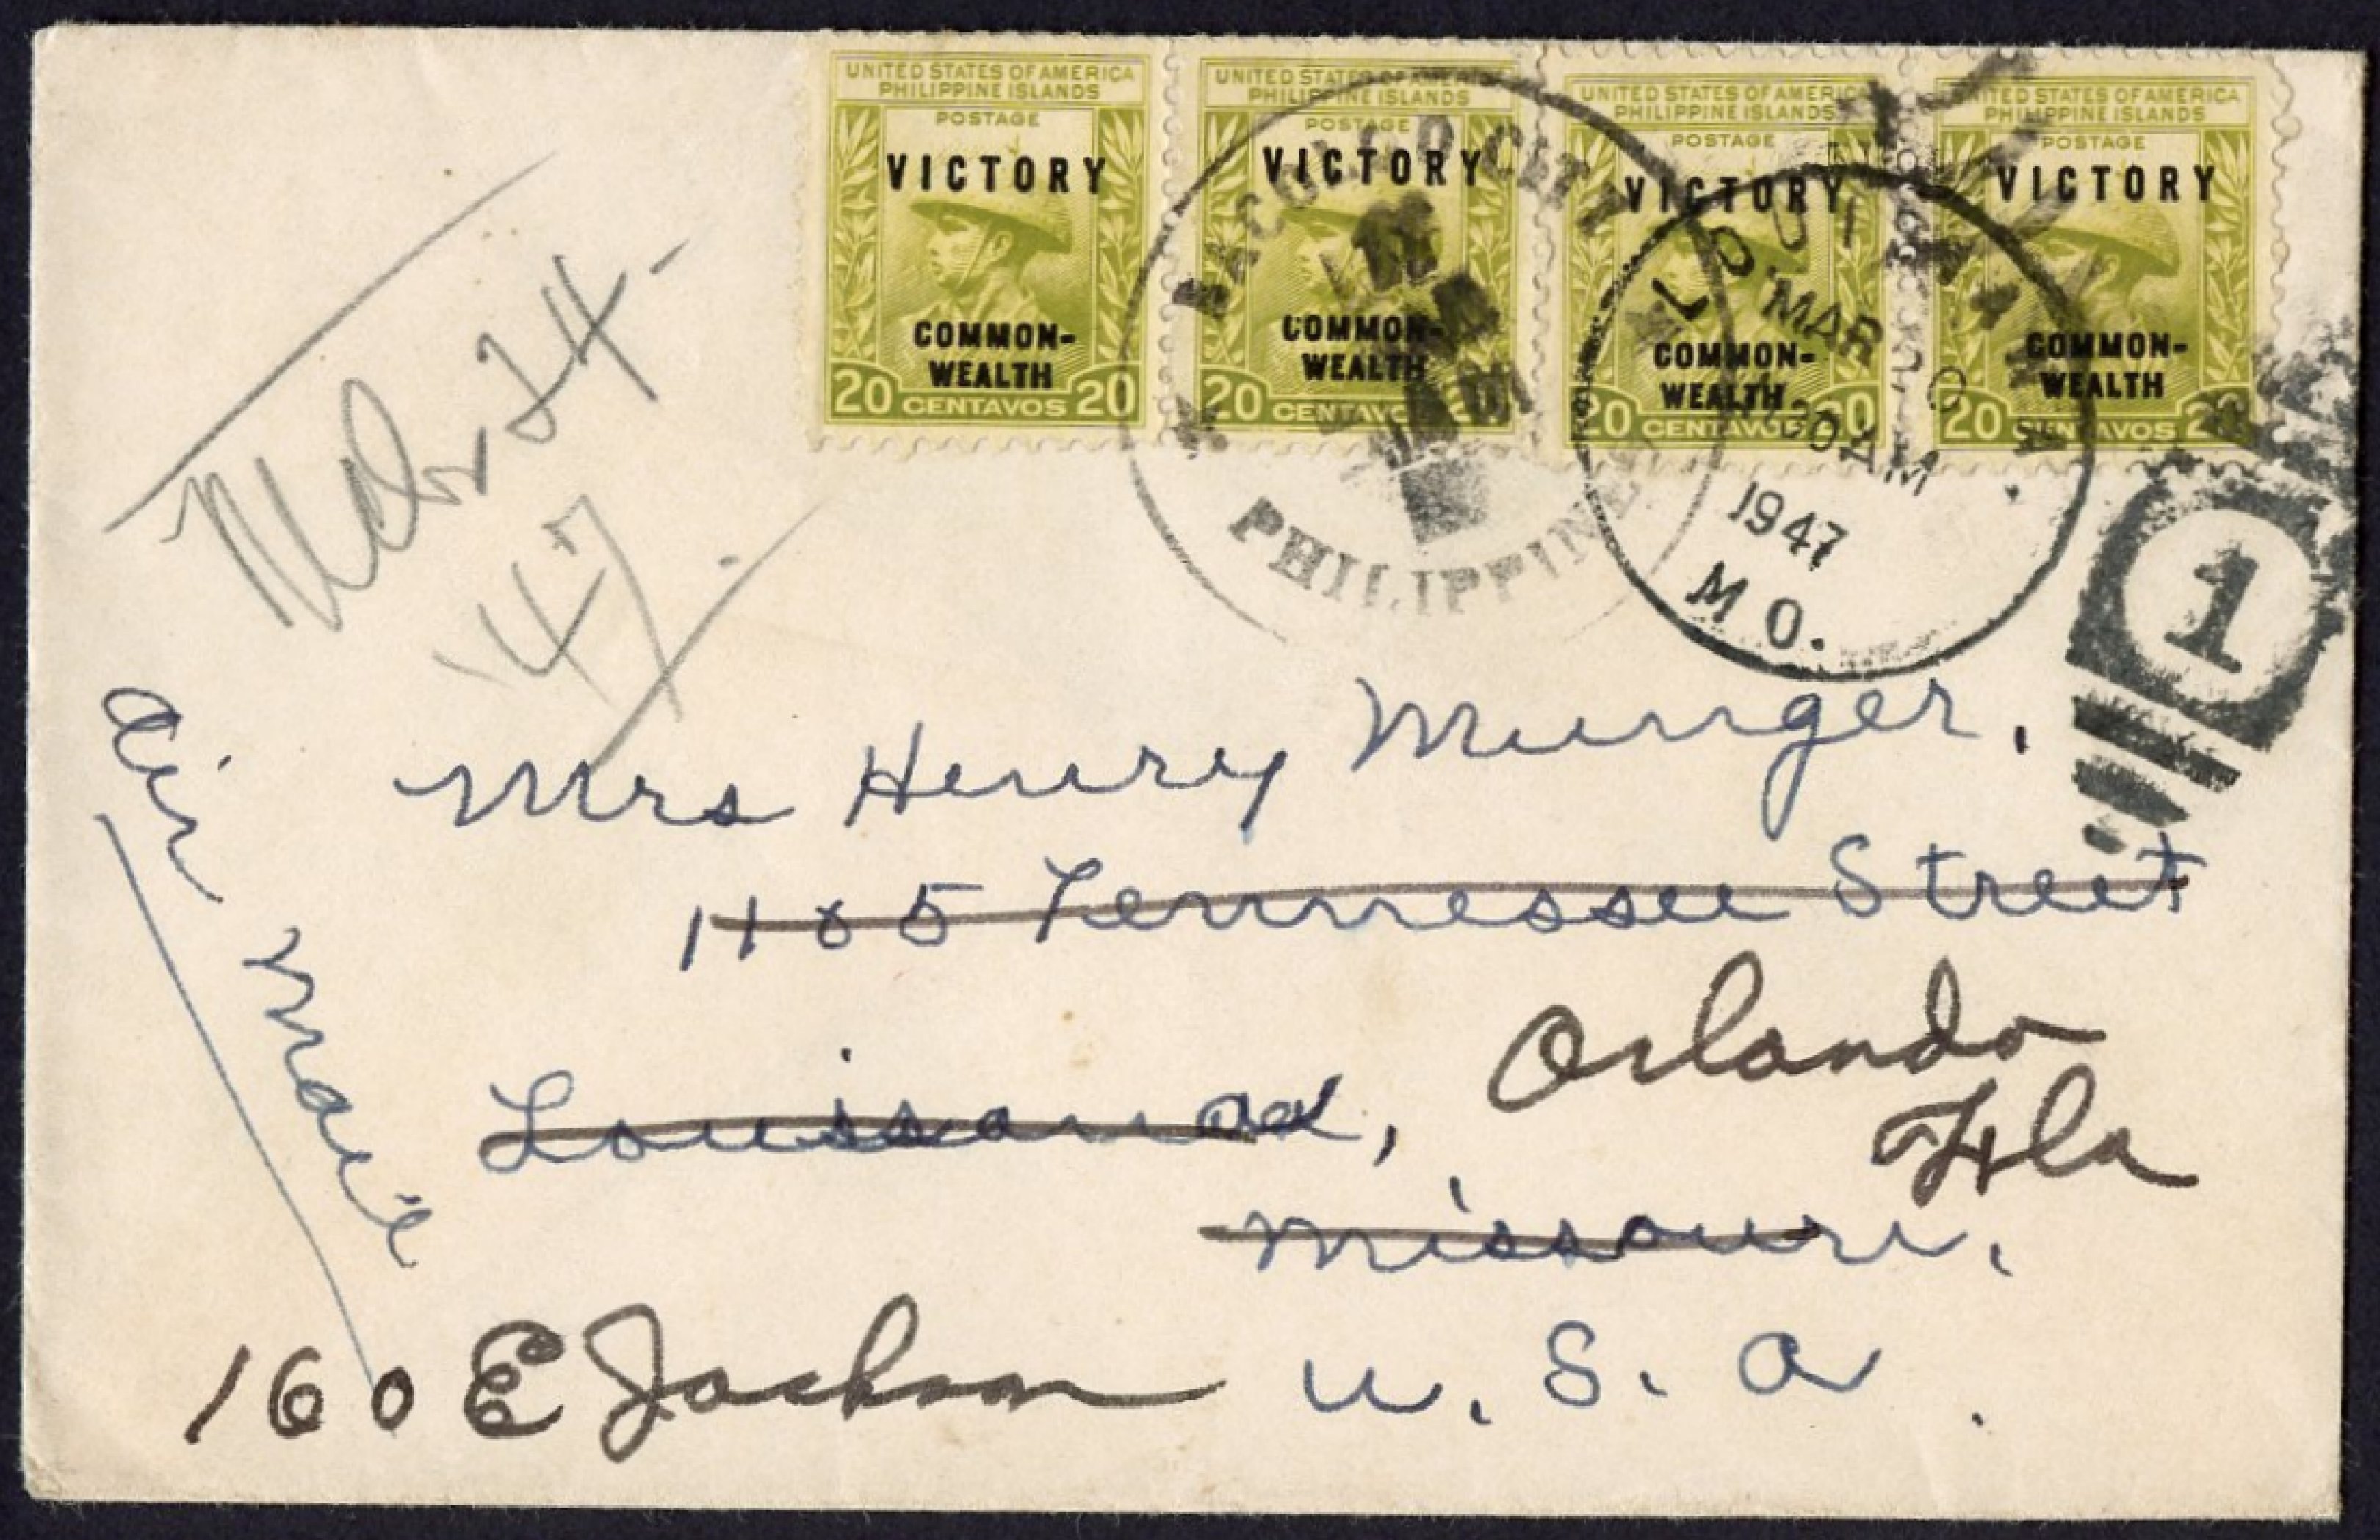 UNITED STATES OF AMERICA
PHILIPPINE ISLANDS
POSTAGE
VICTORY
COMMON-
WEALTH
20 CENTAVOS 20
UNITED STATES OF AMERICA
PHILIPPINE ISLANDS
POSTAGE
VICTORY
COMMON-
WEALTH
20 CENTAVOS 20
UNITED STATES OF AMERICA
PHILIPPINE ISLANDS
POSTAGE
VICTORY
COMMON-
WEALTH
20 CENTAVOS 20
UNITED STATES OF AMERICA
PHILIPPINE ISLANDS
POSTAGE
VICTORY
COMMON-
WEALTH
20 CENTAVOS 20
BACOLOD CITY
PHILIPPINES
LOUISIANA
MAR 20
30 AM
1947
MO.
1
Mch 24-
'47.
Air Mail
Mrs Henry Munger,
1105 Tennessee Street
Orlando
Fla
Missouri,
160 E Jackson U. S. A.